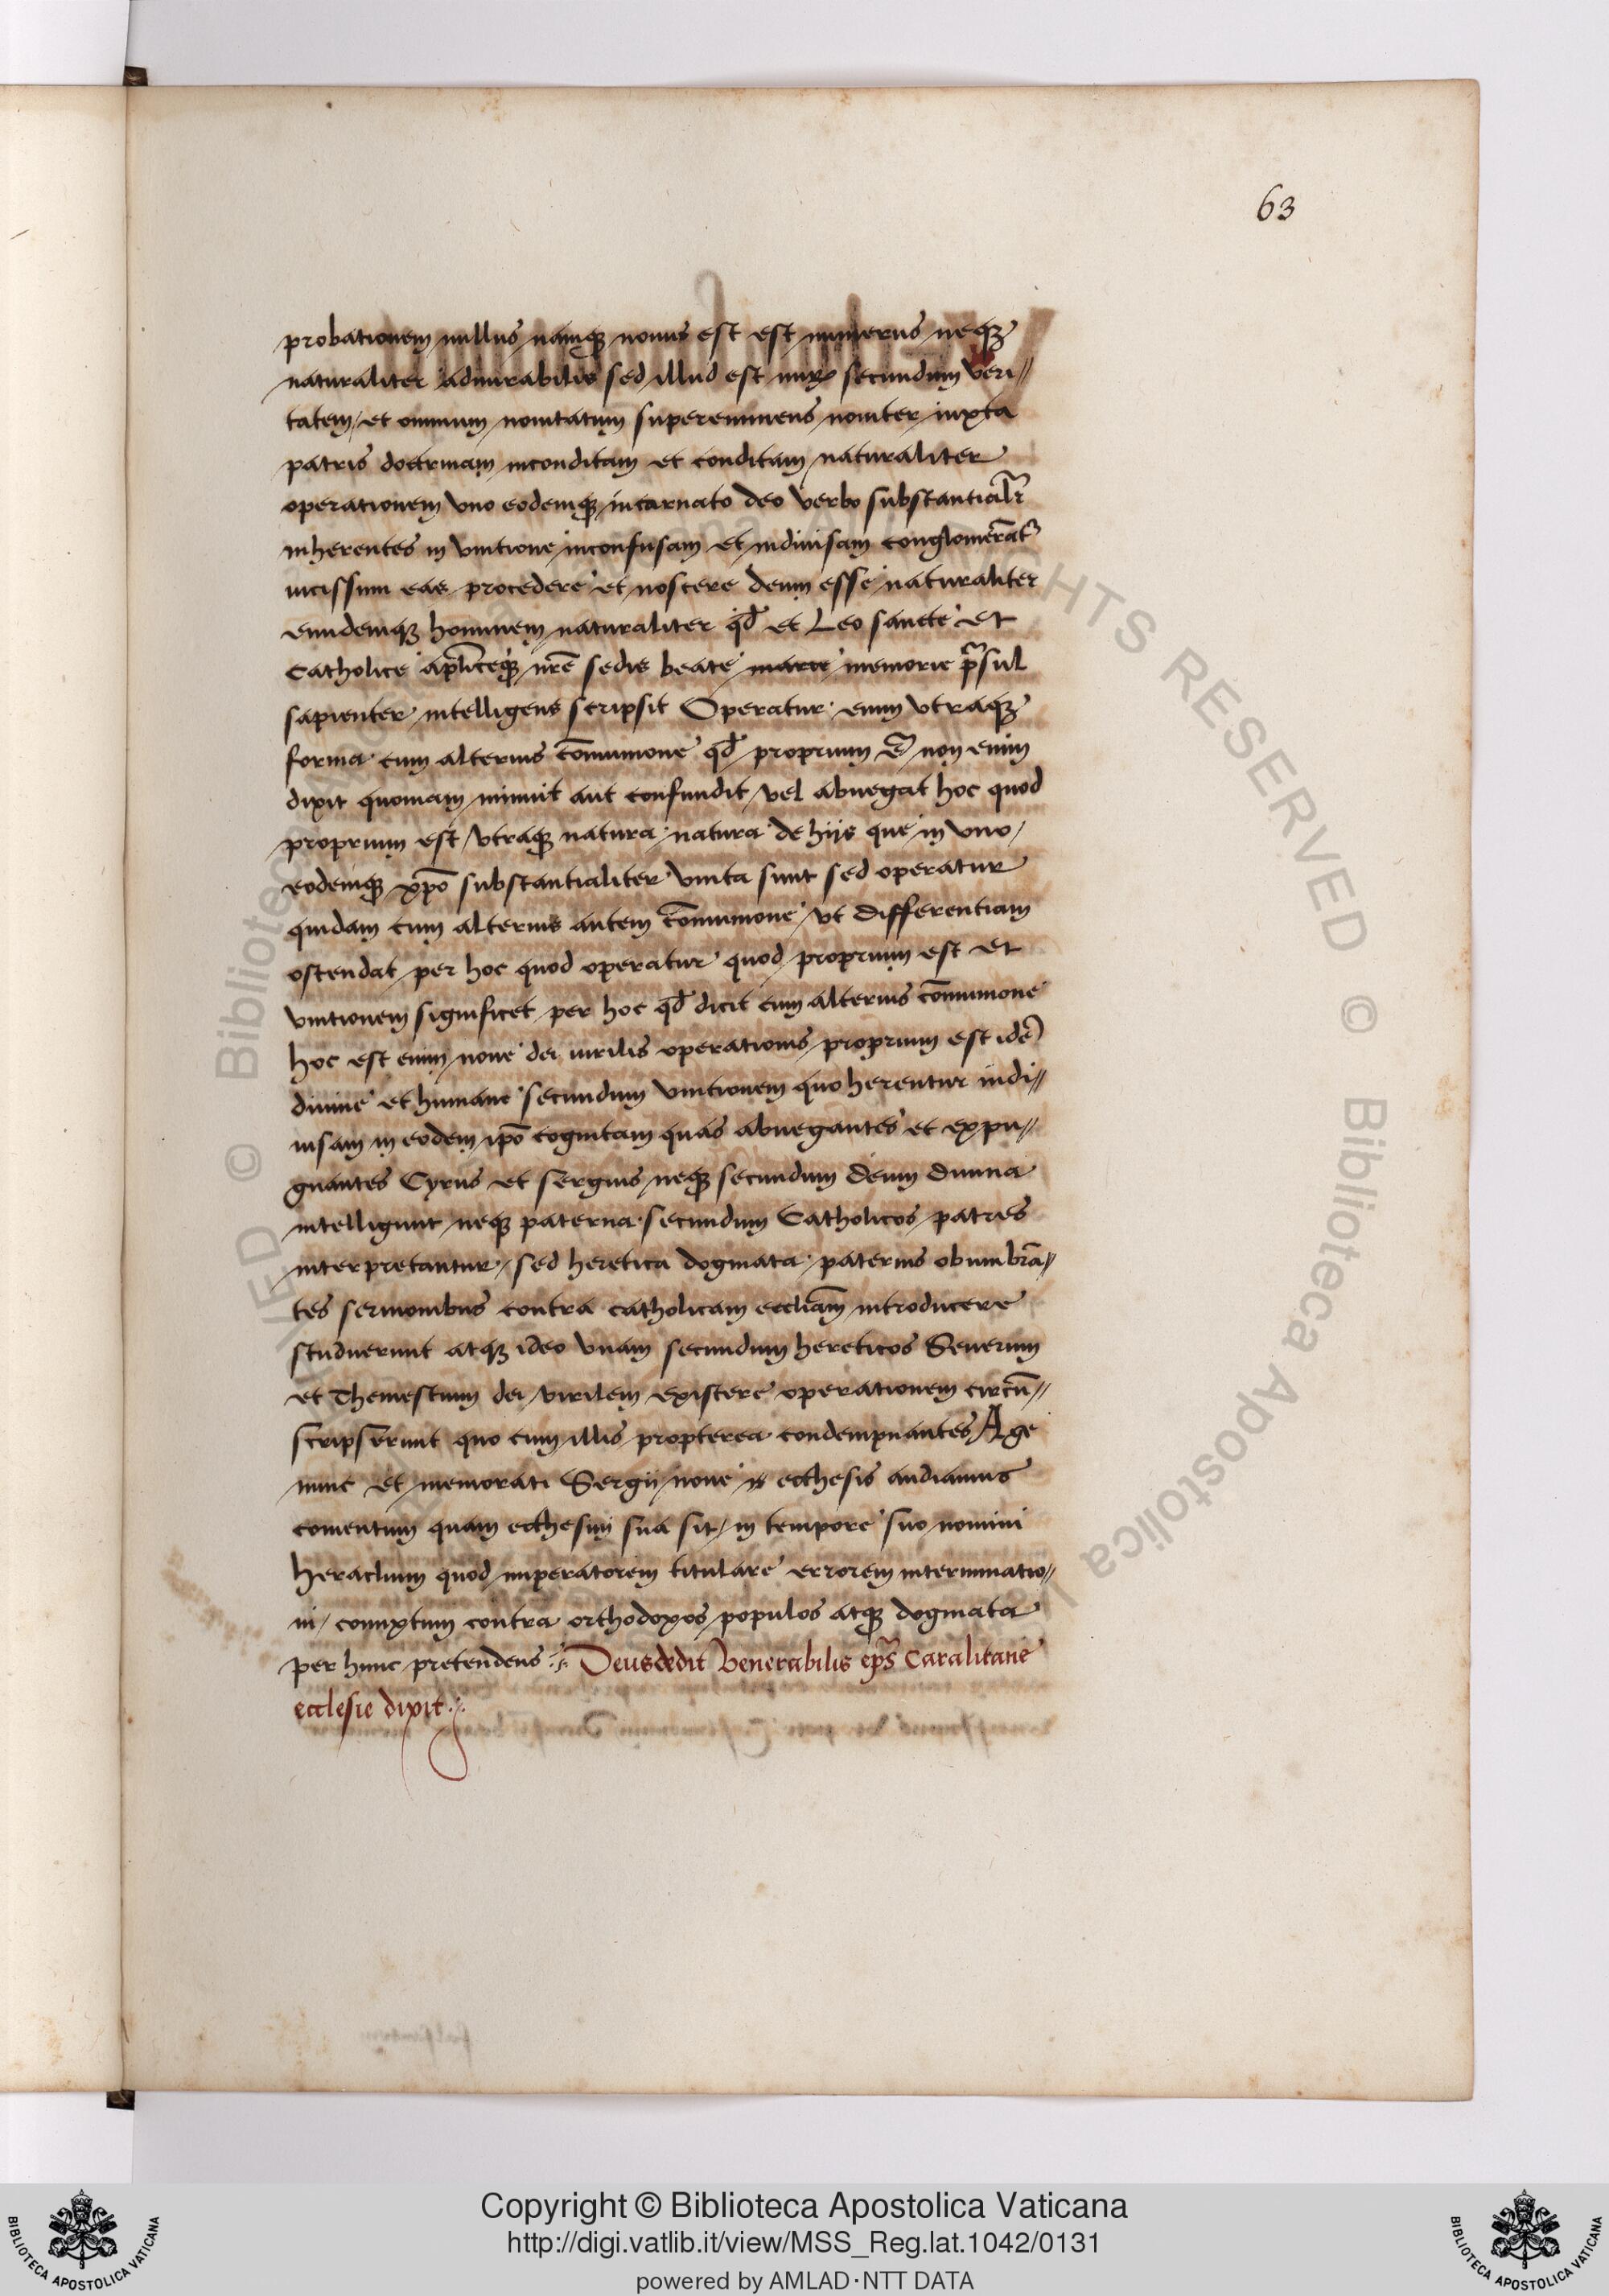 63
probationem nullus namq3 nouus est est numerus neq3
naturaliter admirabilis sed illud est secundum veri//
tatem / et omnium nouitatum supereminens nouiter iuxta
patris doctrinam inconditam et conditam naturaliter
operationem vno eodemq3 incarnato deo verbo substantialr̃
inherentes in vnitione inconfusam et indiuisam conglomerat᷑
uicissim eas procedere et noscere deum esse naturaliter
eundemq3 hominem naturaliter qd̃ et Leo sancte et
catholice apl̃iceq3 nr̃e sedis beate memorie p̃sul
sapienter intelligens scripsit Operatur enim vtraq3
forma cum alterius cõmunione qd̃ proprium ẽ non enim
dixit quoniam minuit aut confundit vel abnegat hoc quod
proprium est vtraq3 natura natura de hijs que in vno
eodemq3 xp̃o substantialiter vnita sunt sed operatur
quidam cum alterius autem cõmunione vt differentiam
ostendat per hoc quod operatur quod proprium est et
vnitionem significet per hoc qd̃ dicit cum alterius cõmunione
hoc est enim noue dei uirilis operationis proprium est idẽ
diuine et humane secundum vnitionem quo herentur indi//
uisam in eodem ip̃o cognitam quas abnegantes et expu//
gnantes Cyrus et sergius neq3 secundum deum diuina
intelligunt neq3 paterna secundum Catholicos patres
interpretantur / sed heretica dogmata paternis obumbrã//
tes sermonibus contra catholicam eccliãm introducere
studuerunt atq3 ideo vnam secundum hereticos Seuerum
et Themestium dei virilem existere operationem circũ//
scripserunt quo cum illis propterea condempnantes Age
nunc et memorati Sergij noue ecthesis audiamus
comentum quam ecthesim sua sit / in tempore suo nomini
heraclium quod imperatorem titulare errorem interminatio//
ni / coniuxtum contra orthodoxos populos atq3 dogmata
per hunc pretendens :~ Deusdedit Venerabilis ep̃s Caralitane
ecclesie dixit :~
Copyright © Biblioteca Apostolica Vaticana
http://digi.vatlib.it/view/MSS_Reg.lat.1042/0131
powered by AMLAD·NTT DATA
BIBLIOTECA APOSTOLICA VATICANA
BIBLIOTECA APOSTOLICA VATICANA